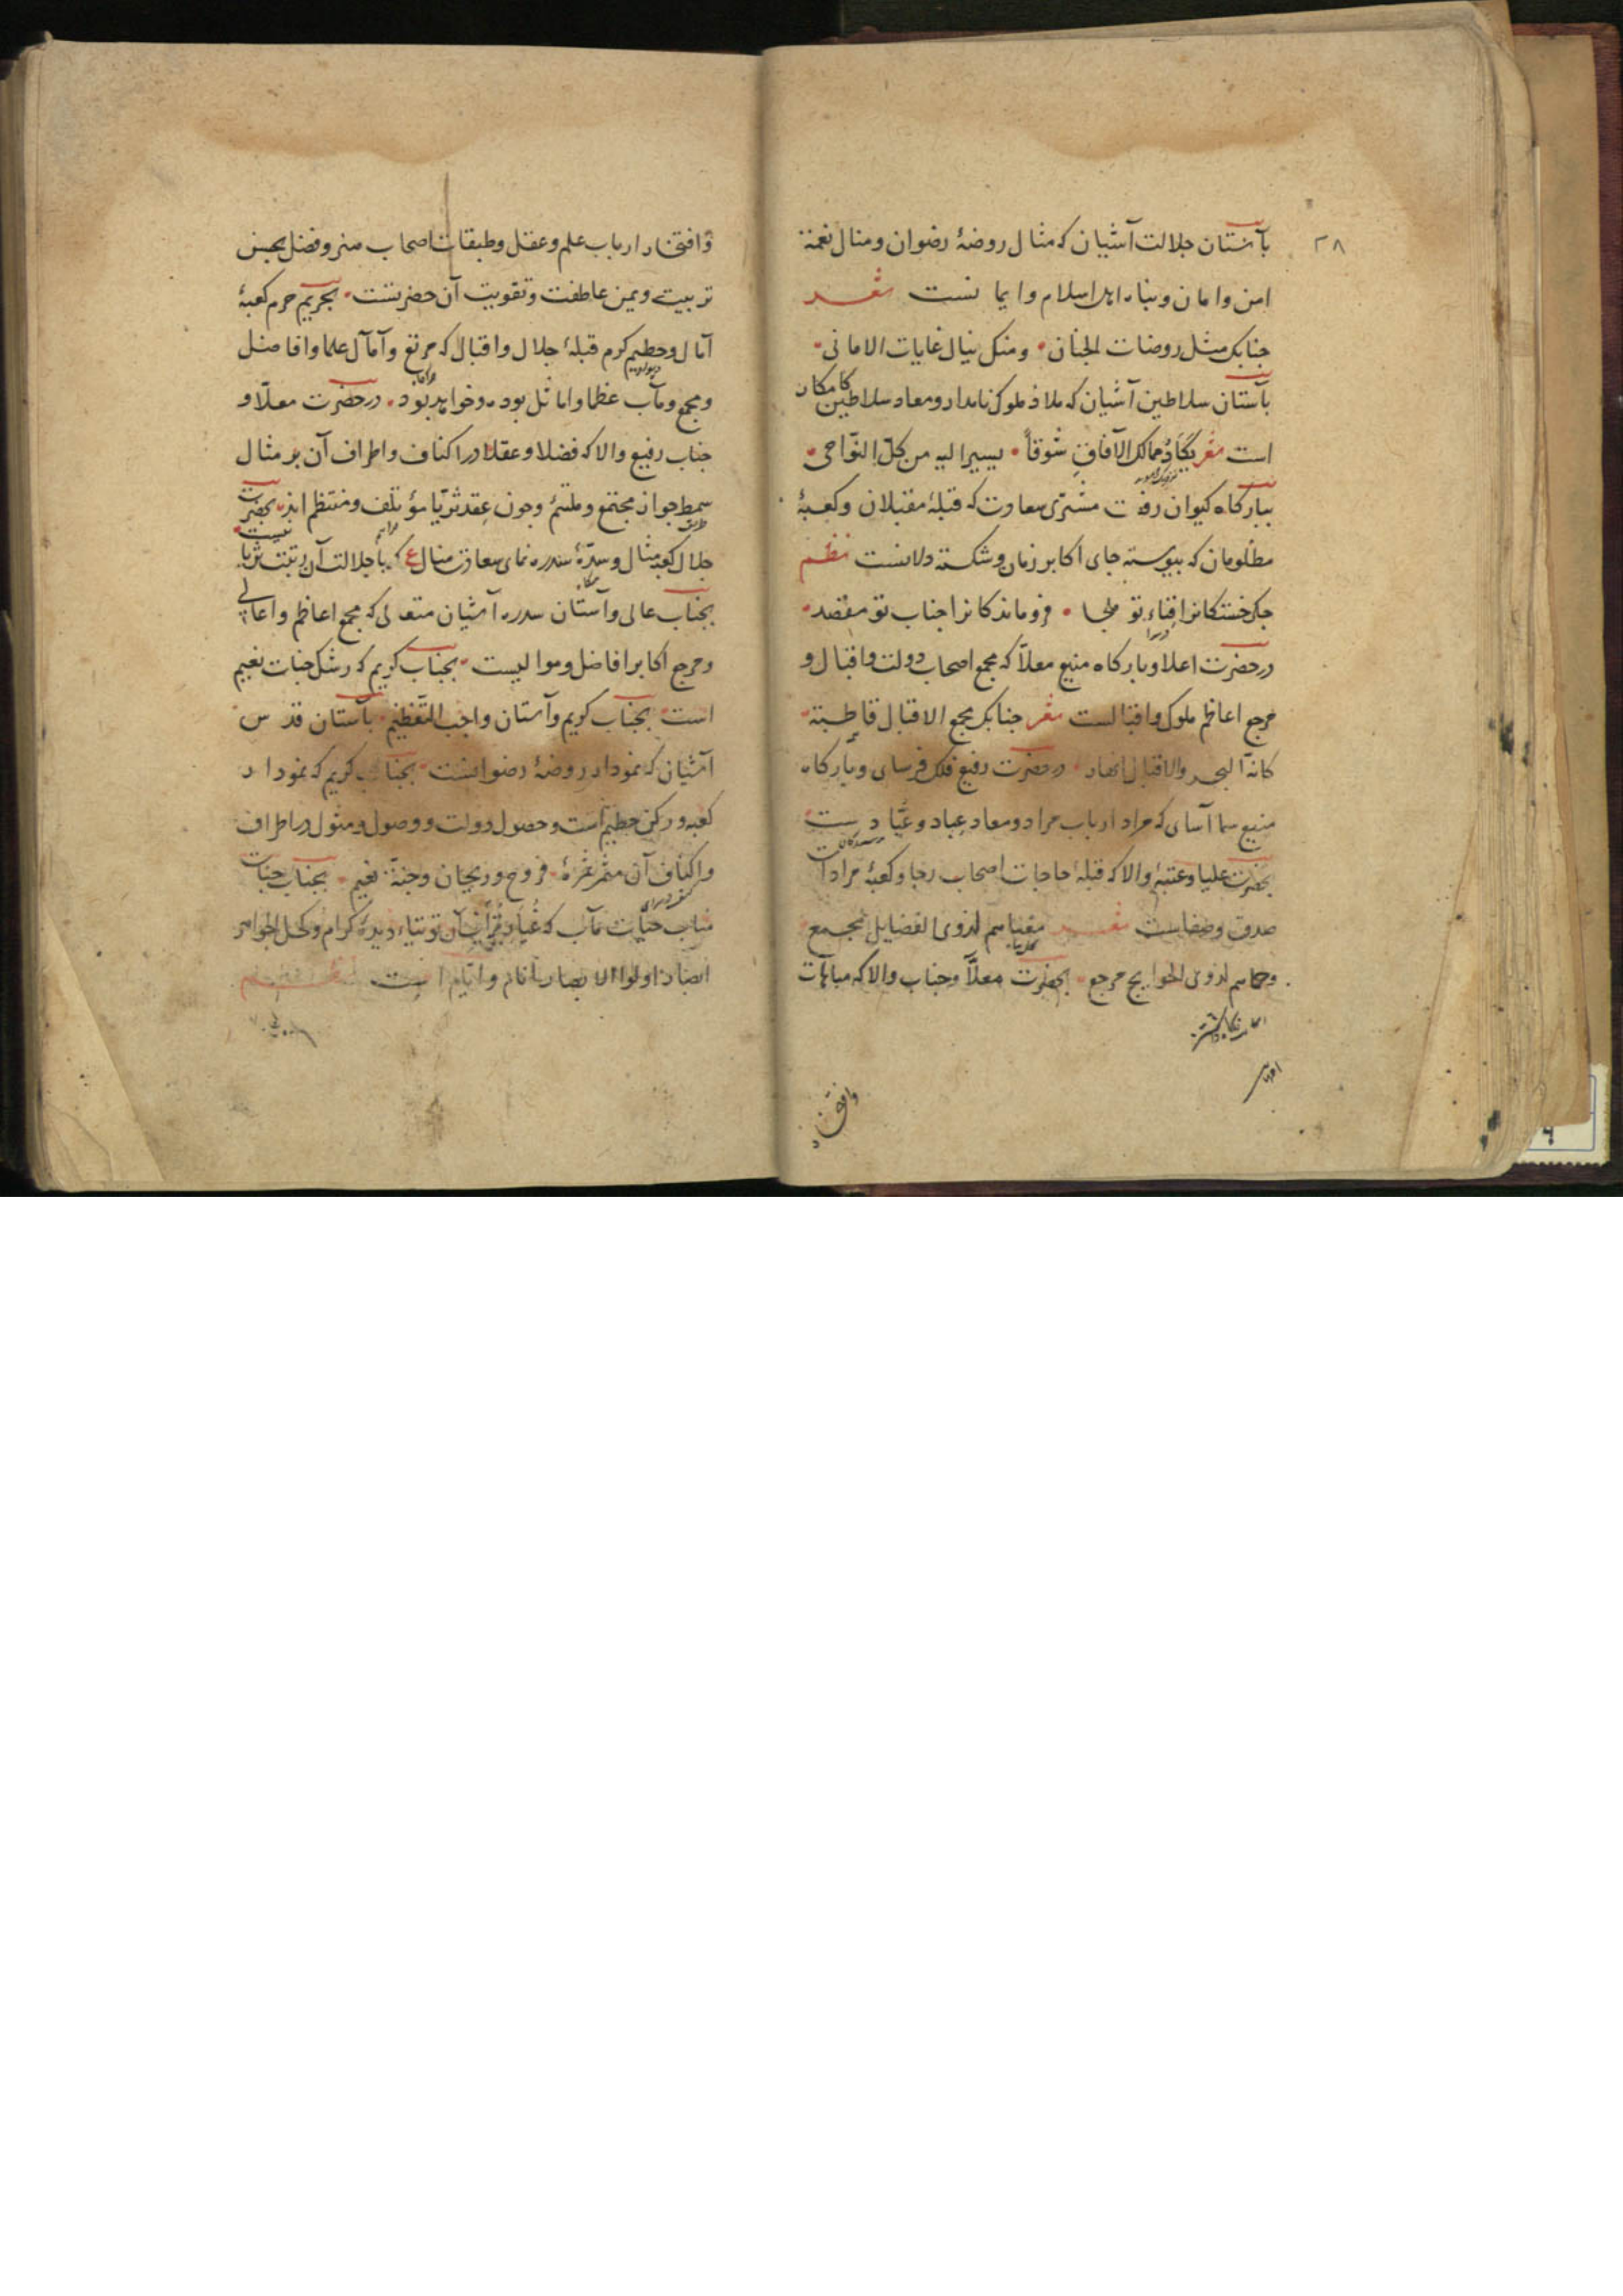 ۲۸
بآستان جلالت آشیان که مثال روضهٔ رضوان ومنال نعمة
امن وامان وپناه اهل اسلام وایما نست شعر
جنابک مثل روضات الجنان ومنک ینال غایات الامانی
بآستان سلاطین آشیان که ملاذ ملوک نامدار ومعاد سلاطین کامکار
است شعر ممالک الآفاق شوقاً یسیر الیه من کل النواحی
ببارکاه کیوان رفعت مشتری سعادت که قبلهٔ مقبلان وکعبهٔ
مظلومان که پیوسته جای اکابر زمان وشکسته دلانست نظم
جکر خستکانرا فناء تو ملجا فروماندکانرا جناب تو مقصد
درحضرت اعلا وبارکاه منیع معلّا که مجمع اصحاب دولت واقبال و
مرجع اعاظم ملوک واقیالست شعر جنابک مجمع الاقبال قاطبة
کانه البحر والاقبال انهار درحضرت رفیع فلک فرسای وبارکاه
منیع سما آسای که مراد ارباب مراد ومعاد عباد وعبّاد ست
بحضرت علیا وعتبهٔ والا که قبلهٔ حاجات اصحاب رجا وکعبهٔ مرادات
صدق وصفاست شعر لذوی الفضایل مجمع
لذوی الحوایج مرجع بحضرت معلّا وجناب والا که مباهات
وافتخار
وافتخار ارباب علم وعقل وطبقات اصحاب هنر وفضل بحسن
تربیت ویمن عاطفت وتقویت آن حضرتست بحریم حرم کعبهٔ
آمال وحطیم کرم قبلهٔ جلال واقبال که مرتع وآمال علما وافاضل
ومجمع ومآب عظما واماثل بوده وخواهد بود درحضرت معلّا و
جناب رفیع والا که فضلا وعقلا در اکناف واطراف آن بر مثال
سمط جواهر مجتمع وملتئم وچون عقد ثریّا مؤتلف ومنتظم اند بحضرت
جلال کعبه مثال وسدّهٔ سدره نمای سعادت منال ع که با جلالت آن رتبت ثریا نیست
بجناب عالی وآستان سدره آشیان متعالی که مجمع اعاظم واعالی
ومرجع اکابر افاضل وموالیست بجناب کریم که رشک جنات نعیم
است بجناب کریم وآستان واجب التعظیم بآستان قدس
آشیان که نمودار روضهٔ رضوانست بجناب کریم که نمودار
کعبه ورکن حطیم است وحصول دولت ووصول ومثول در اطراف
واکناف آن مثمر ثمرهٔ فروح وریحان وجنة نعیم بجناب جنات
مناب حیات مآب که غبار آن توتیاء دیدهٔ کرام وکحل الجواهر
ابصار اولوا الابصار انام وایام است نظم